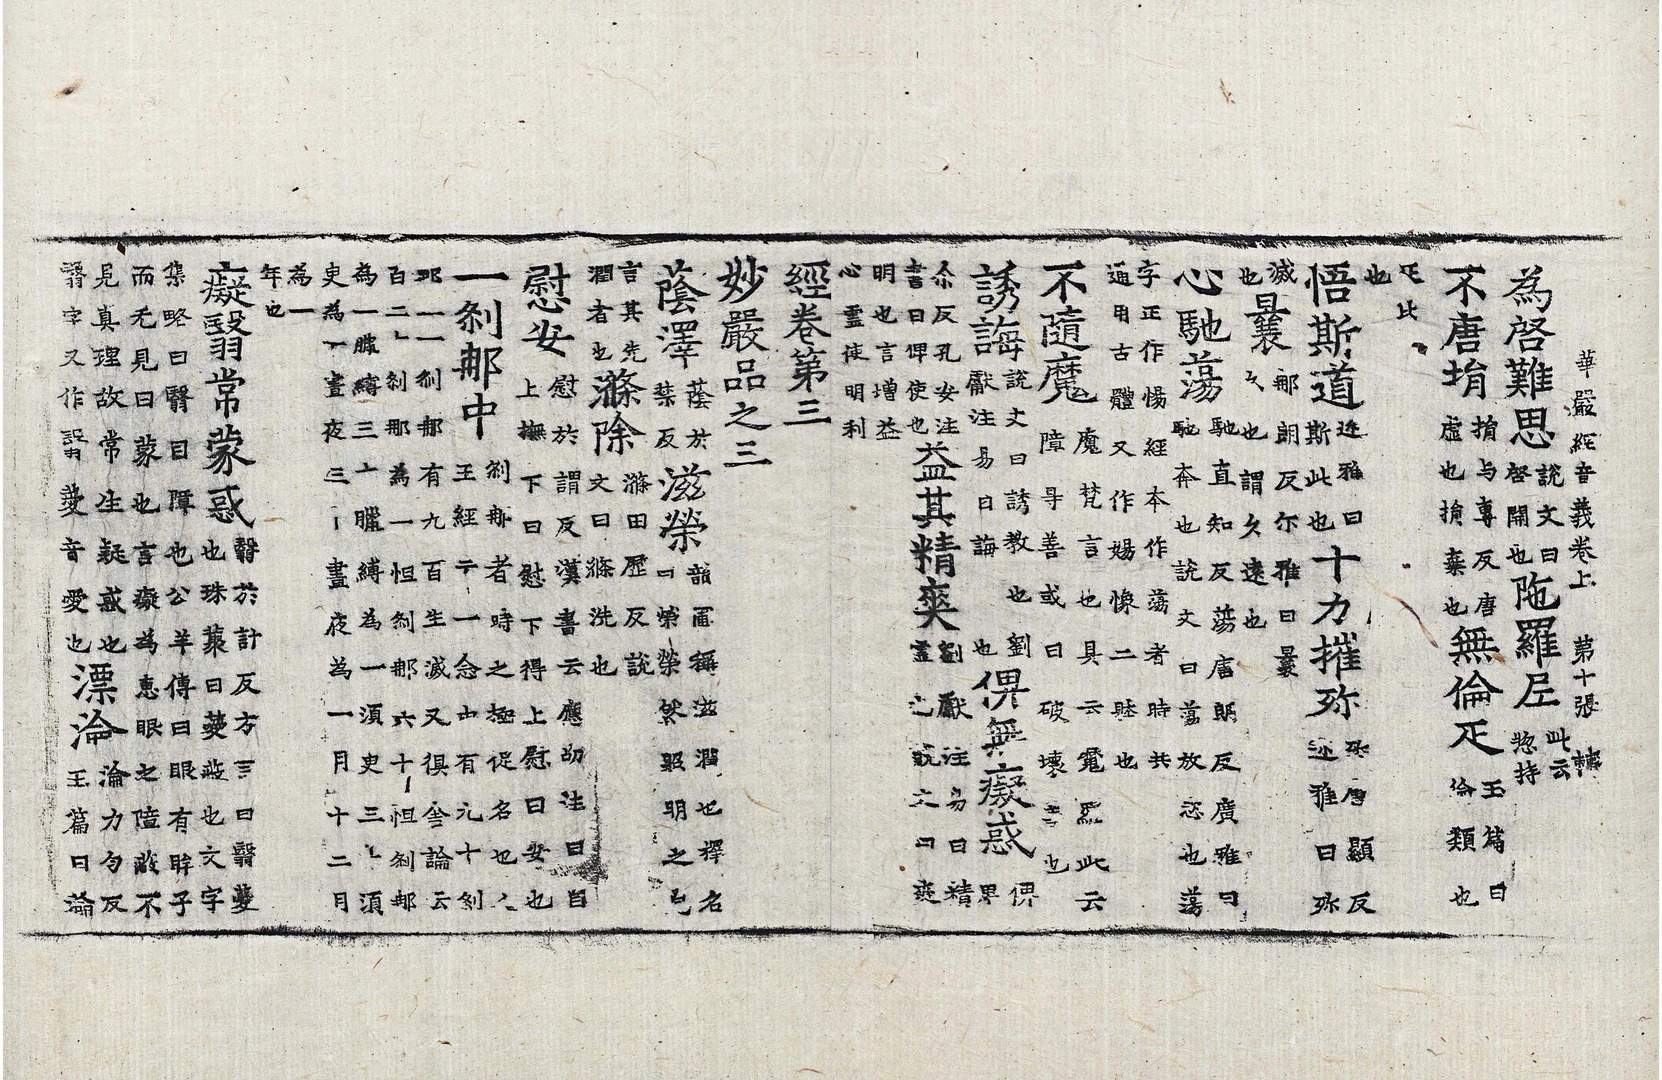 華嚴經音義卷上 第十張
為啓難思 說文曰啓開也 陁羅尼 此云惣持
不唐捐 捐与專反唐虛也捐棄也 無倫疋 玉篇曰倫類也
疋比也
悟斯道 迩雅曰斯此也 十力摧殄 殄唐顯反迩雅曰殄
滅也 曩 那朗反尓雅曰曩久也謂久遠也
心馳蕩 馳直知反蕩唐朗反廣雅曰馳奔也說文曰蕩放恣也蕩
字正作愓經本作蕩者時共通用古體又作婸像二
不隨魔 魔梵言也具云魔羅此云障㝵善或曰破壞善也
誘誨 說文曰誘教也劉瓛注易曰誨也 俾無癡惑 俾卑
尒反孔安注書曰俾使也 益其精爽 劉瓛注易曰精靈也說文曰爽
明也言增益心靈使明利
經卷第三
妙嚴品之三
蔭澤 蔭於禁反 滋榮 韻圃稱滋潤也釋名曰榮榮然照明之皃
言其光潤者也 滌除 滌田歷反說文曰滌洗也
慰安 慰於謂反漢書云應劭注曰自上撫下曰慰下得上慰曰安也
一剎那中 剎那者時之極促名也仁王經云一念中有九十剎
那一一剎那有九百生滅又俱舍論云百二十剎那為一怛剎那六十怛剎那
為一臘縛三十臘縛為一須臾三十須臾為一晝夜三十晝夜為一月十二月
為一年也
癡翳常蒙惑 翳於計反方言曰翳薆也珠叢曰薆蔽也文字
集略曰翳目障也公羊傳曰眼有眸子而无見曰蒙也言癡為惠眼之瞙蔽不
見真理故常生疑惑也 漂淪 淪力勻反玉篇曰淪
翳字又作䁾薆音愛也